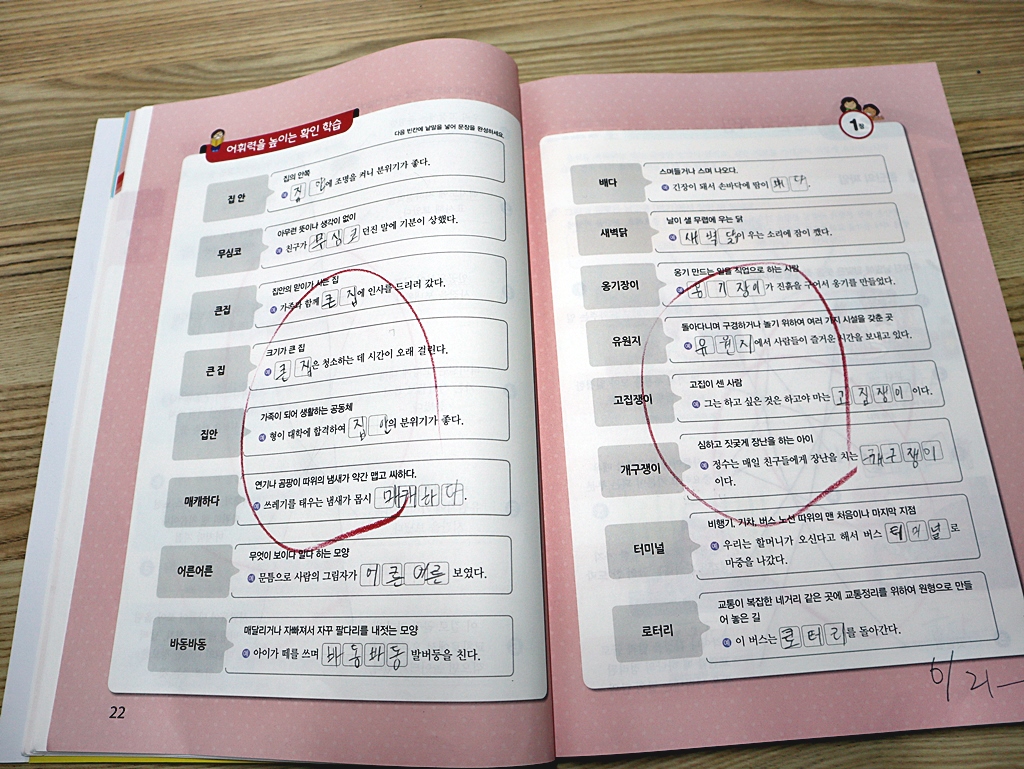 어휘력을 높이는 확인 학습
다음 빈칸에 낱말을 넣어 문장을 완성하세요.
집 안
집의 안쪽
예 집 안에 조명을 켜니 분위기가 좋다.
무심코
아무런 뜻이나 생각이 없이
예 친구가 무심코 던진 말에 기분이 상했다.
큰집
집안의 맏이가 사는 집
예 가족과 함께 큰집에 인사를 드리러 갔다.
큰 집
크기가 큰 집
예 큰 집은 청소하는 데 시간이 오래 걸린다.
집안
가족이 되어 생활하는 공동체
예 형이 대학에 합격하여 집안의 분위기가 좋다.
매캐하다
연기나 곰팡이 따위의 냄새가 약간 맵고 싸하다.
예 쓰레기를 태우는 냄새가 몹시 매캐하다.
어른어른
무엇이 보이다 말다 하는 모양
예 문틈으로 사람의 그림자가 어른어른 보였다.
바동바동
매달리거나 자빠져서 자꾸 팔다리를 내젓는 모양
예 아이가 떼를 쓰며 바동바동 발버둥을 친다.
22
1장
배다
스며들거나 스며 나오다.
예 긴장이 돼서 손바닥에 땀이 배다.
새벽닭
날이 샐 무렵에 우는 닭
예 새벽닭이 우는 소리에 잠이 깼다.
옹기장이
옹기 만드는 일을 직업으로 하는 사람
예 옹기장이가 진흙을 구어서 옹기를 만들었다.
유원지
돌아다니며 구경하거나 놀기 위하여 여러 가지 시설을 갖춘 곳
예 유원지에서 사람들이 즐거운 시간을 보내고 있다.
고집쟁이
고집이 센 사람
예 그는 하고 싶은 것은 하고야 마는 고집쟁이이다.
개구쟁이
심하고 짓궂게 장난을 하는 아이
예 정수는 매일 친구들에게 장난을 치는 개구쟁이
이다.
터미널
비행기, 기차, 버스 노선 따위의 맨 처음이나 마지막 지점
예 우리는 할머니가 오신다고 해서 버스 터미널로
마중을 나갔다.
로터리
교통이 복잡한 네거리 같은 곳에 교통정리를 위하여 원형으로 만들
어 놓은 길
예 이 버스는 로터리를 돌아간다.
6/21